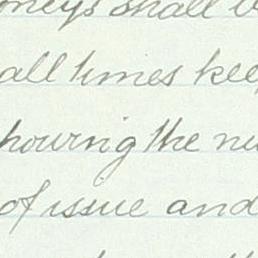 oneys shall b
all times kee
howing the nu
of issue and